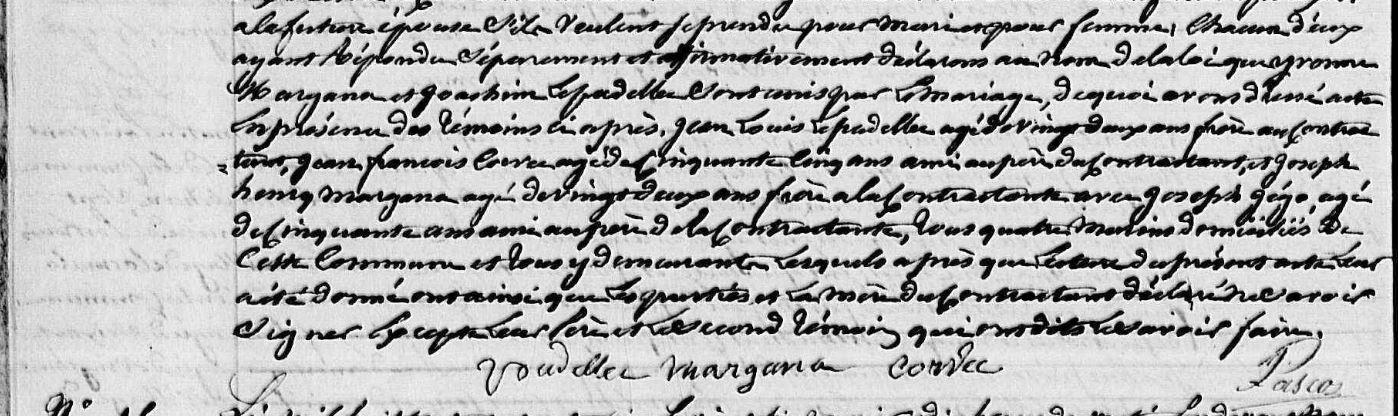 a la future épouse s'ils veulent se prendre pour mari et pour femme, chacun d'eux
ayant répondu séparement et affirmativement déclarons au nom de la loi que yvonne
Margana et Joachim Lepadellec sont unis par le mariage, de quoi avons dressé acte
en présence des témoins ci après, Jean Louis Lepadellec agé de vingt deux ans frère au contrac
=tant, Jean françois Corvec agé de cinquante cinq ans ami au père du contractant, et Joseph
henry Margana agé de vingt deux ans frère a la contractante avec Joseph Jégo, agé
de cinquante ans ami au père de la contractante, tous quatre Marins domiciliés de
Cette Commune et tous y demeurants lesquels après que lecture du présent acte leur
a été donné ont ainsi que les parties et la mère du contractant déclaré ne savoir
Signer Excepté leur père et le second témoin qui ont dits le savoir faire.
margana corvec
Pasco